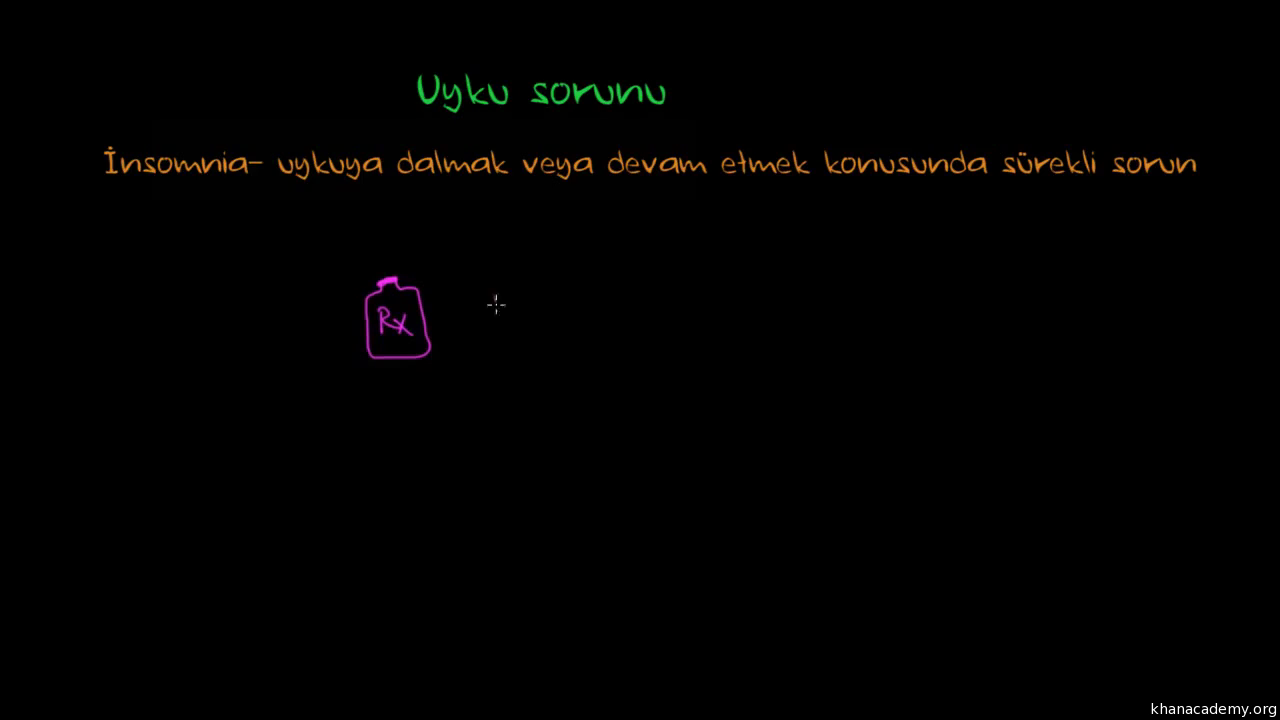 Uyku sorunu
İnsomnia- uykuya dalmak veya devam etmek konusunda sürekli sorun
Rx
khanacademy.org